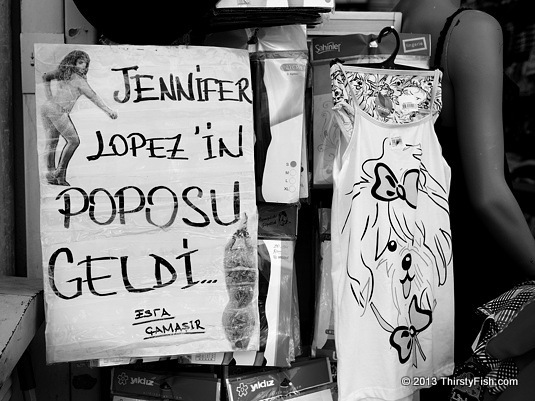 JENNİFER
LOPEZ'İN
POPOSU
GELDİ...
ESRA
ÇAMAŞIR
Şahinler
lingerie
S
M
L
XL
yıldız
yıldız
© 2013 ThirstyFish.com